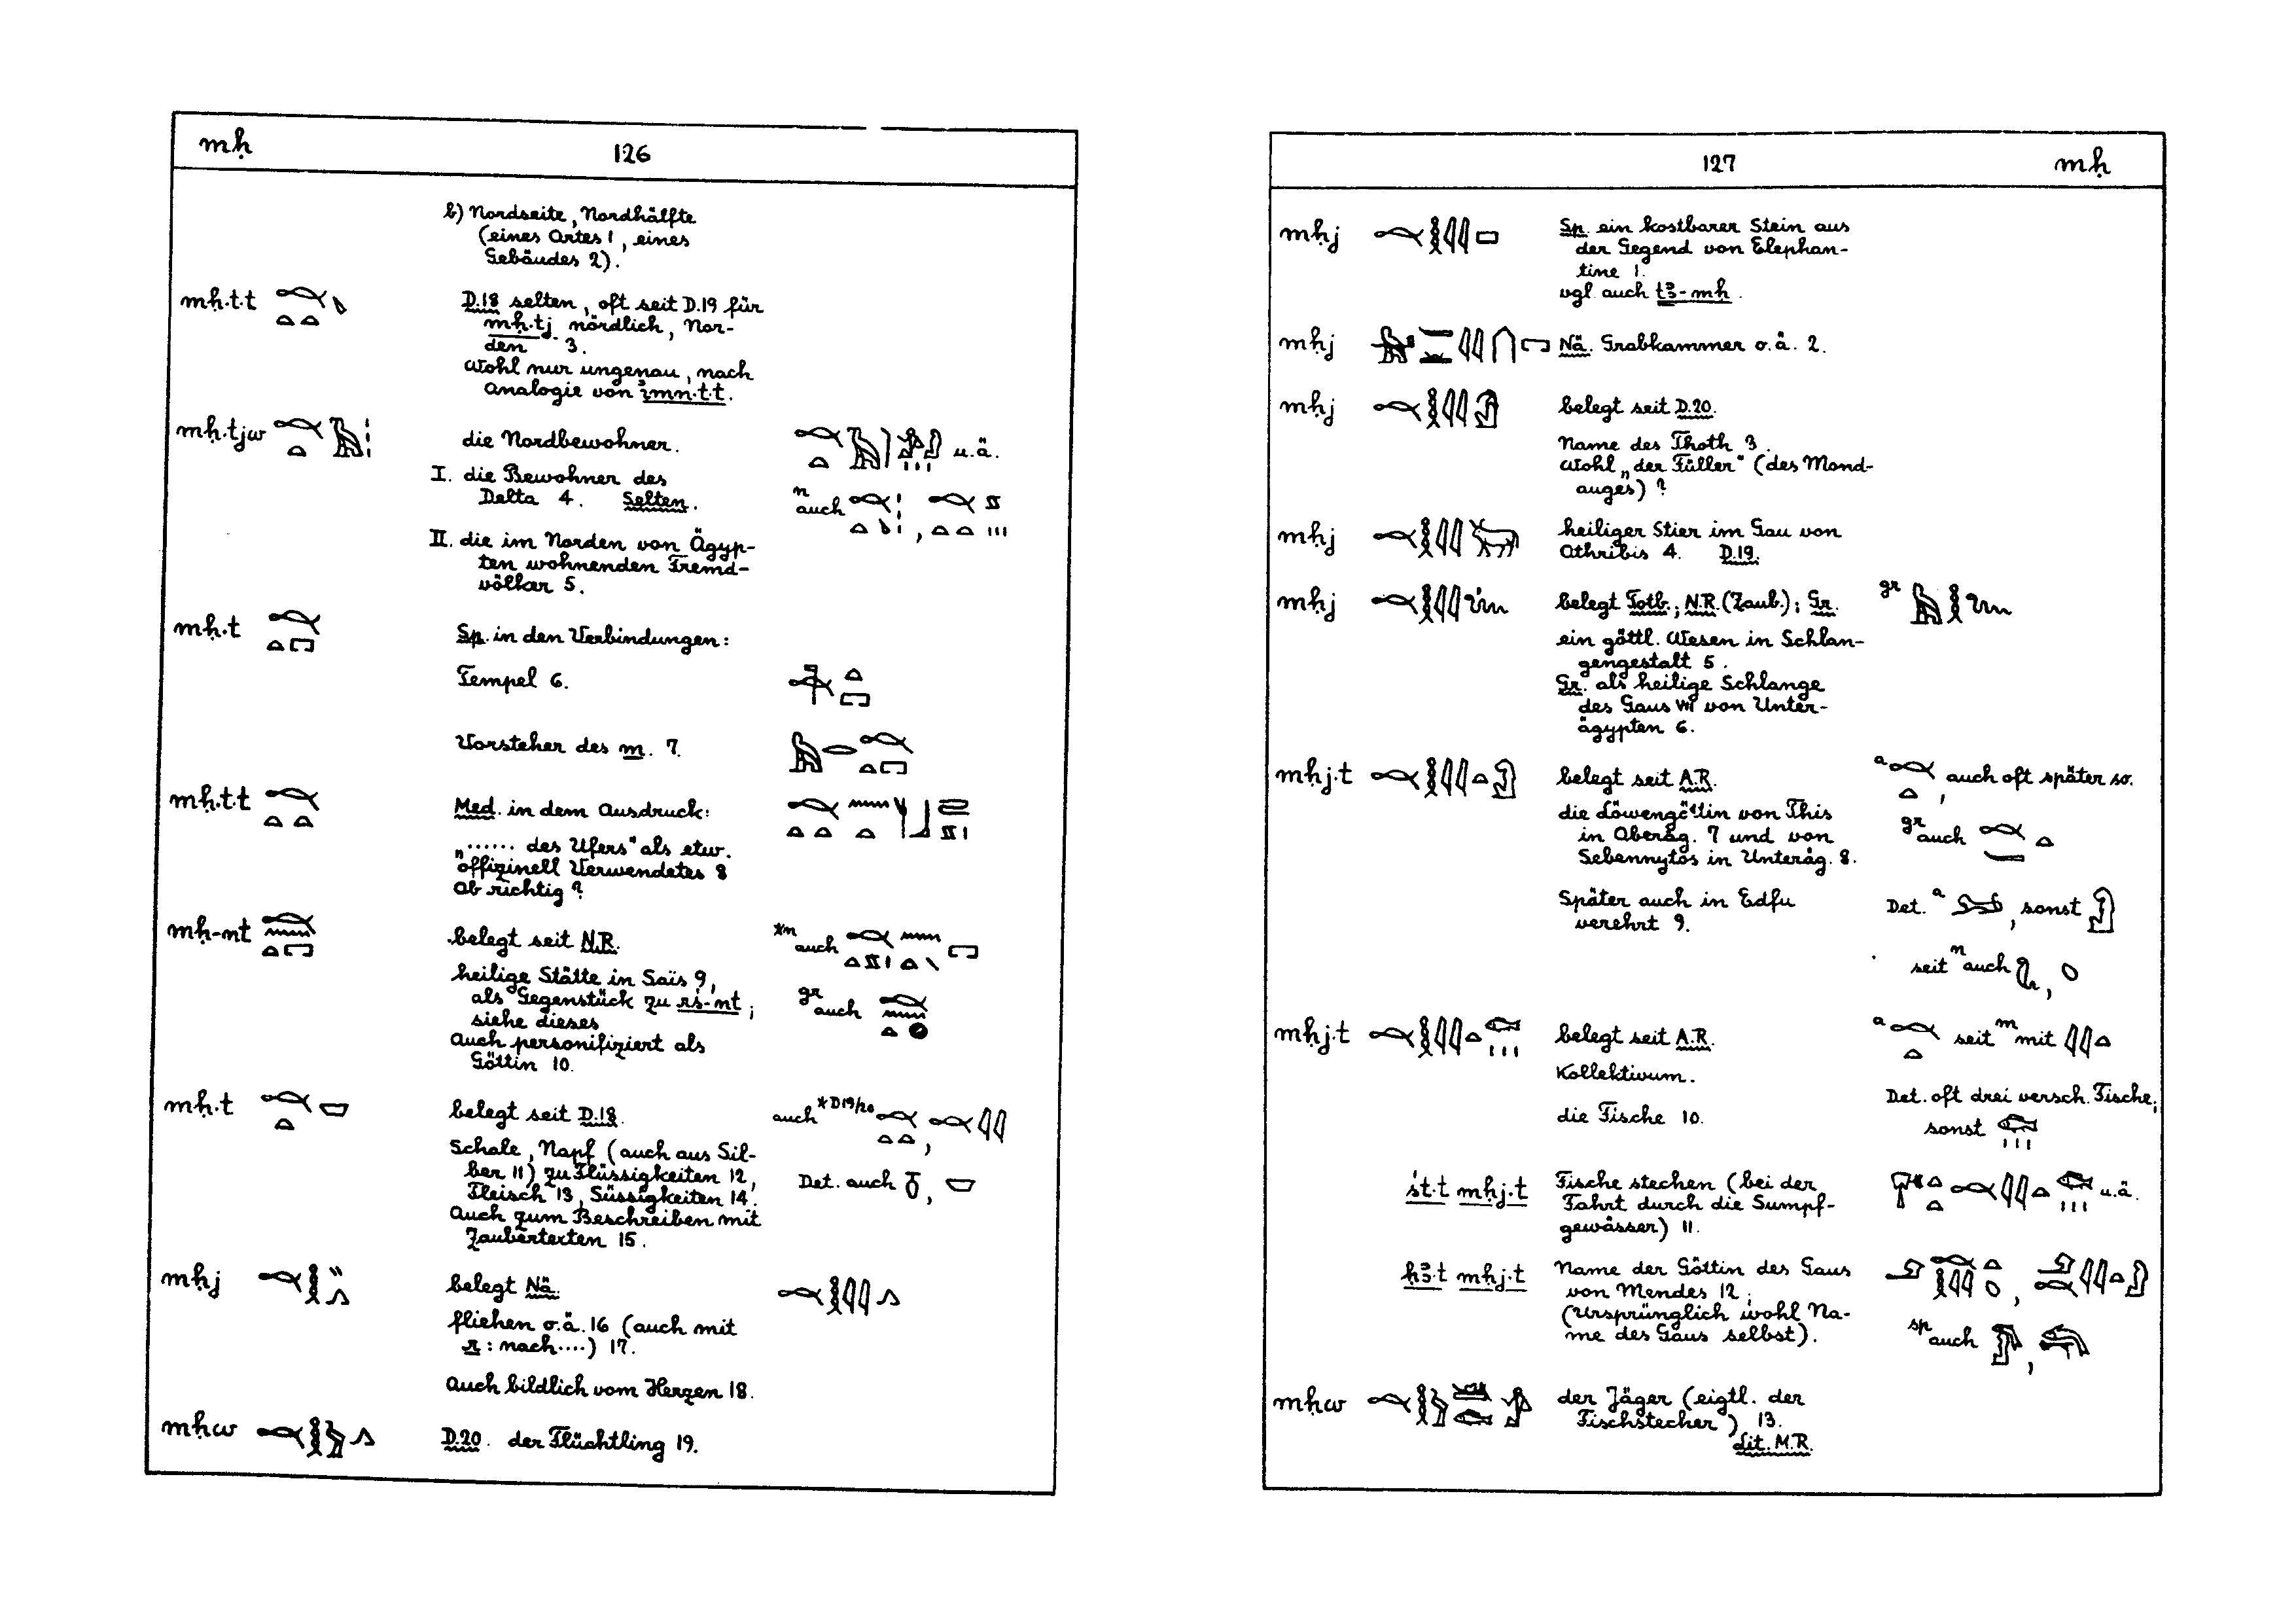 mḥ
126
b) Nordseite, Nordhälfte
(eines Ortes 1, eines
Gebäudes 2).
mḥ.t.t
D.18 selten, oft seit D.19 für
mḥ.tj nördlich, Nor-
den 3.
Wohl nur ungenau, nach
Analogie von imn.t.t.
mḥ.tjw
die Nordbewohner.
u.ä.
I. die Bewohner des
Delta 4. Selten.
n auch
II. die im Norden von Ägyp-
ten wohnenden Fremd-
völker 5.
mḥ.t
Sp. in den Verbindungen:
Tempel 6.
Vorsteher des m. 7.
mḥ.t.t
Med. in dem Ausdruck:
„...... des Ufers" als etw.
offizinell Verwendetes 8
Ob richtig?
mḥ-nt
belegt seit N.R.
*n auch
heilige Stätte in Saïs 9,
als Gegenstück zu rś-nt;
siehe dieses
gr auch
Auch personifiziert als
Göttin 10.
mḥ.t
belegt seit D.18.
auch *D19/20
Schale, Napf (auch aus Sil-
ber 11) zu Flüssigkeiten 12,
Fleisch 13, Süssigkeiten 14.
Det. auch
Auch zum Beschreiben mit
Zaubertexten 15.
mḥj
belegt Nä.
fliehen o.ä. 16 (auch mit
r: nach....) 17.
Auch bildlich vom Herzen 18.
mḥw
D.20. der Flüchtling 19.
127
mḥ
mḥj
Sp. ein kostbarer Stein aus
der Gegend von Elephan-
tine 1.
vgl. auch t3-mḥ.
mḥj
Nä. Grabkammer o.ä. 2.
mḥj
belegt seit D.20.
Name des Thoth 3.
Wohl „der Füller" (des Mond-
auges)?
mḥj
heiliger Stier im Gau von
Athribis 4. D.19.
mḥj
belegt Totb.; N.R. (Zaub.); Gr.
gr
ein göttl. Wesen in Schlan-
gengestalt 5.
Gr. als heilige Schlange
des Gaus VII von Unter-
ägypten 6.
mḥj.t
belegt seit A.R.
a , auch oft später so.
die Löwengöttin von This
in Oberäg. 7 und von
Sebennytos in Unteräg. 8.
gr auch
Später auch in Edfu
verehrt 9.
Det. a , sonst
seit n auch ,
mḥj.t
belegt seit A.R.
a seit m mit
Kollektivum.
die Fische 10.
Det. oft drei versch. Fische;
sonst
śt.t mḥj.t
Fische stechen (bei der
Fahrt durch die Sumpf-
gewässer) 11.
u.ä.
ḥ3.t mḥj.t
Name der Göttin des Gaus
von Mendes 12;
(Ursprünglich wohl Na-
me des Gaus selbst).
sp auch
mḥw
der Jäger (eigtl. der
Fischstecher) 13.
Lit. M.R.